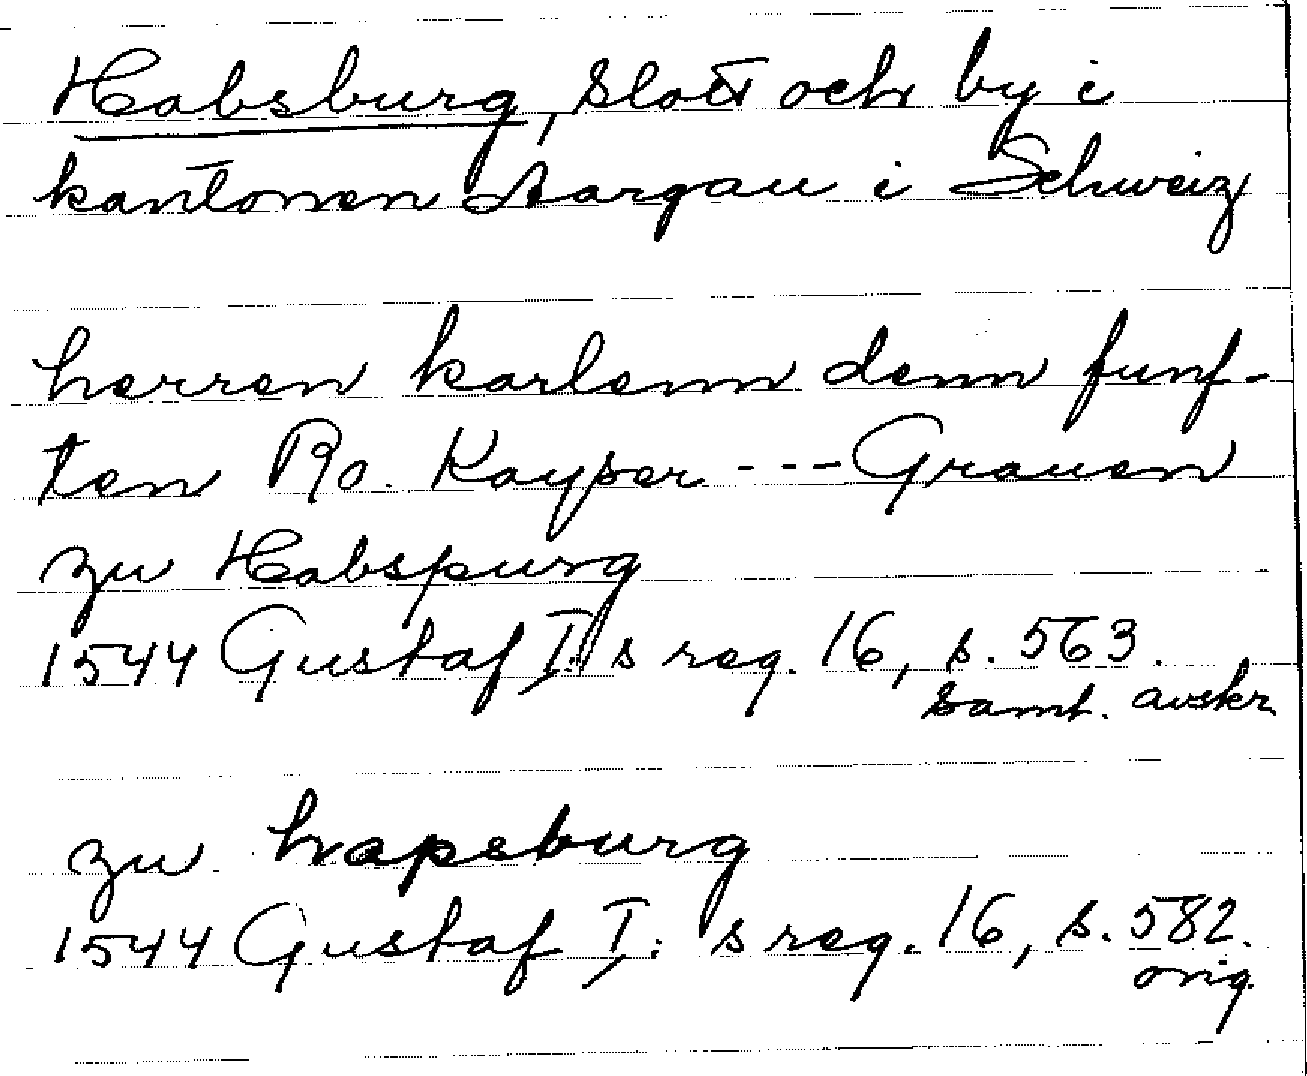 Habsburg, slott och by i
kantonen Aargau i Schweiz
herren karlenn denn funf-
ten Ro. Kayser --- Grauen
zu Habspurg
1544 Gustaf I:s reg. 16, s. 563.
samt. avskr.
zu hapsburg
1544 Gustaf I:s reg. 16, s. 582.
orig.